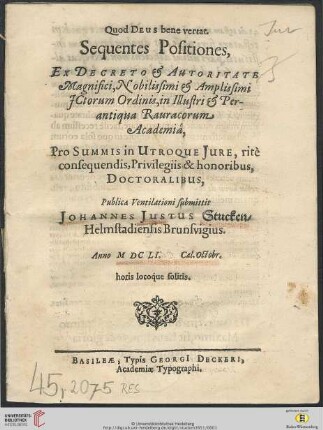 Quod DEUS bene vertat.
Sequentes Positiones,
EX DECRETO & AUTORITATE
Magnifici, Nobilissimi & Amplissimi
JCtorum Ordinis, in Illustri & Per-
antiqua Rauracorum
Academiâ,
PRO SUMMIS in UTROQUE JURE, ritè
consequendis, Privilegiis & honoribus,
DOCTORALIBUS,
Publicæ Ventilationi submittit
JOHANNES JUSTUS Stucken/
Helmstadiensis Brunsvigius.
Anno M DC LI. Cal. Octobr.
horis locoque solitis.
BASILEÆ, Typis GEORGI DECKERI,
Academiæ Typographi.
45, 2075 RES
UNIVERSITÄTS-
BIBLIOTHEK
HEIDELBERG
© Universitätsbibliothek Heidelberg
gefördert durch